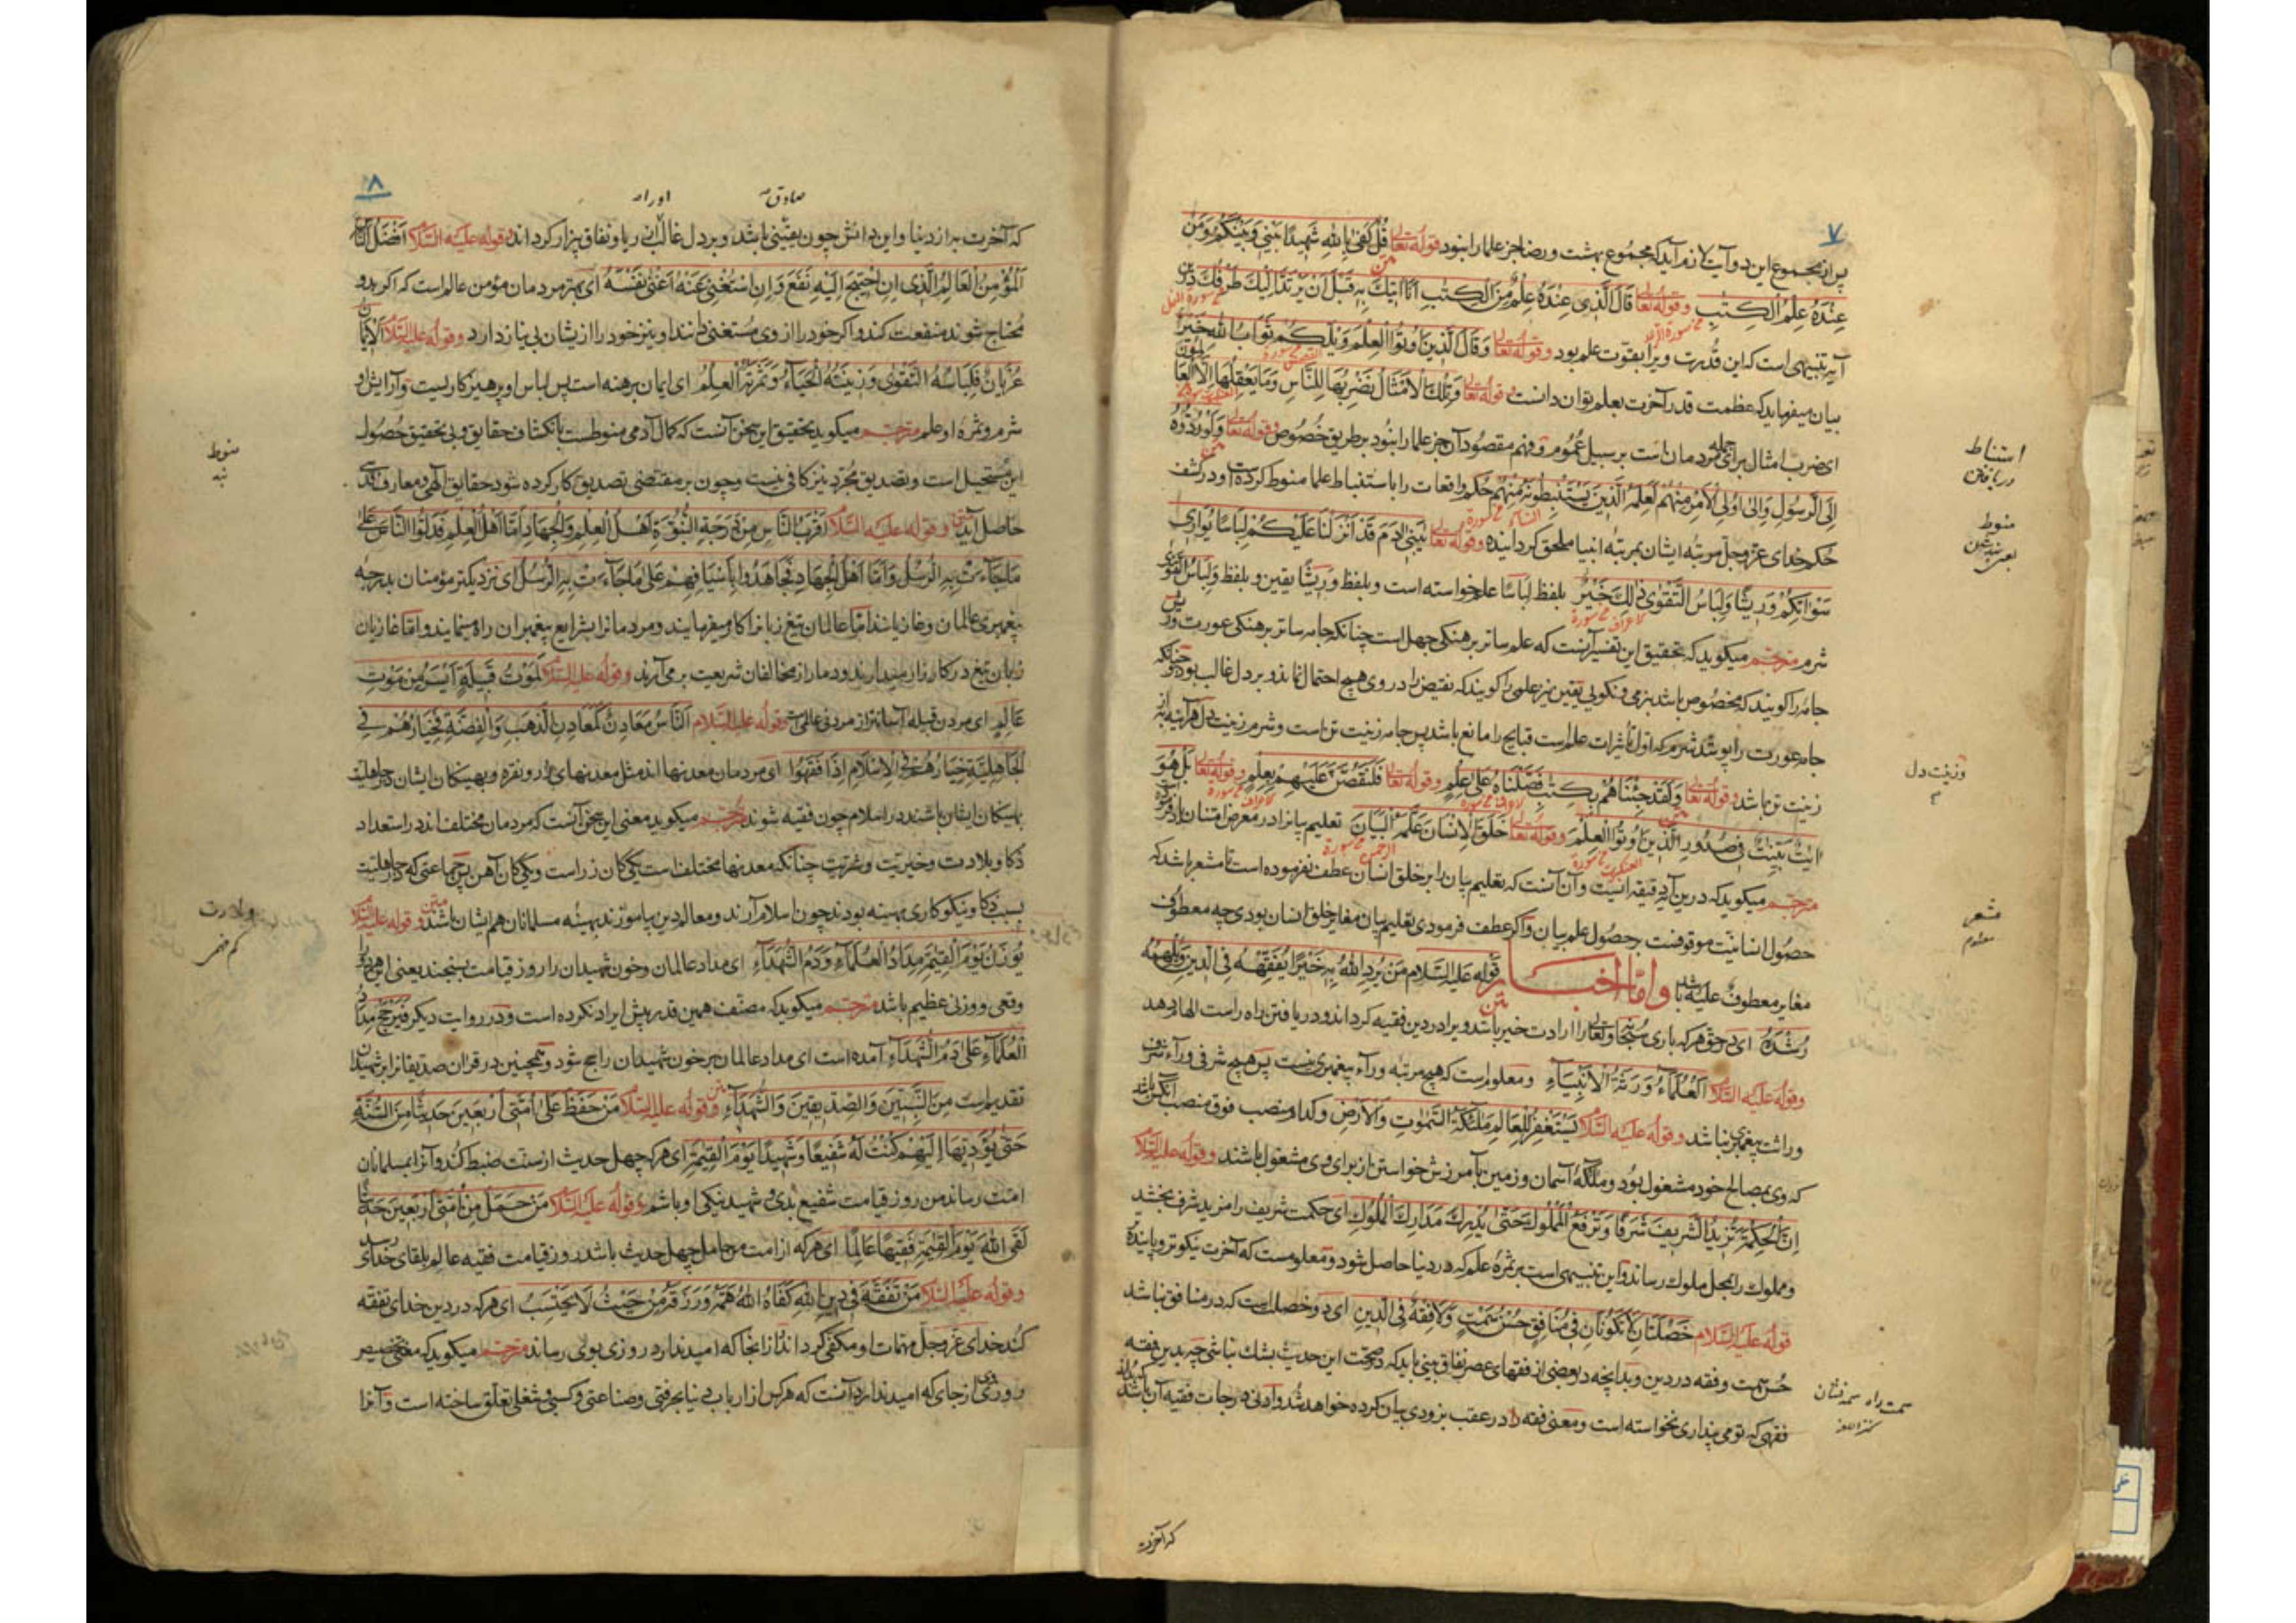 ۷
پس از مجموع این دو آیت لازم آید که مجموع بهشت و رضا جز علما را نبود قوله تعالی قُلْ كَفٰی بِاللهِ شَهِيدًا بَيْنِی وَبَيْنَكُمْ وَمَنْ
عِنْدَهُ عِلْمُ الْكِتٰبِ وقوله تعالی قَالَ الَّذِی عِنْدَهُ عِلْمٌ مِنَ الْكِتٰبِ اَنَا اٰتِيكَ بِهِ قَبْلَ اَنْ يَرْتَدَّ اِلَيْكَ طَرْفُكَ درین
آیه تنبیهی است که این قدرت ویرا بقوّت علم بود وقوله تعالی وَقَالَ الَّذِينَ اُوتُوا الْعِلْمَ وَيْلَكُمْ ثَوَابُ اللهِ خَيْرٌ
بیان میفرماید که عظمت قدر آخرت بعلم توان دانست وقوله تعالی وَتِلْكَ الْاَمْثَالُ نَضْرِبُهَا لِلنَّاسِ وَمَا يَعْقِلُهَا اِلَّا الْعَالِمُونَ
ای ضرب امثال برای جمله مردمان است بر سبیل عُمُوم و فهم مقصود آن جز علما را نبود بر طریق خُصُوص وقوله تعالی وَلَوْ رَدُّوهُ
اِلَی الرَّسُولِ وَاِلٰی اُولِی الْاَمْرِ مِنْهُمْ لَعَلِمَهُ الَّذِينَ يَسْتَنْبِطُونَهُ مِنْهُمْ حکم واقعات را باستنباط علما منوط کرده است و در کشف
حکم خدای عزّ وجلّ مرتبه ایشان بمرتبه انبیا ملحق گردانیده وقوله تعالی يٰبَنِی اٰدَمَ قَدْ اَنْزَلْنَا عَلَيْكُمْ لِبَاسًا يُوَارِی
سَوْاٰتِكُمْ وَرِيشًا وَلِبَاسُ التَّقْوٰی ذٰلِكَ خَيْرٌ بلفظ لباسًا علم خواسته است و بلفظ وریشًا یقین و بلفظ وَلِبَاسُ التَّقْوٰی
شرم مترجم میکوید که تحقیق این تفسیر آنست که علم ساتر برهنکی جهل است چنانکه جامه ساتر برهنکی عورت وریش
جامه را کویند که مخصوص باشد بنرمی و نکویی یقین نیز علمی را کویند که نقیض را در وی هیچ احتمال نماند و بر دل غالب بود چنانکه
جامه عورت را بپوشد شرم که اول تأثیرات علم است قبایح را مانع باشد پس جامه زینت تن است و شرم زینت دل هرآینه به از
زینت تن باشد وقوله تعالی وَلَقَدْ جِئْنَاهُمْ بِكِتٰبٍ فَصَّلْنَاهُ عَلٰی عِلْمٍ وقوله تعالی فَلَنَقُصَّنَّ عَلَيْهِمْ بِعِلْمٍ وقوله تعالی بَلْ هُوَ
اٰيٰتٌ بَيِّنٰتٌ فِی صُدُورِ الَّذِينَ اُوتُوا الْعِلْمَ وقوله تعالی خَلَقَ الْاِنْسَانَ عَلَّمَهُ الْبَيَانَ تعلیم بیانرا در معرض امتنان یاد فرموده است
مترجم میکوید که درین آیه دقیقه ایست و آن آنست که تعلیم بیان را بر خلق انسان عطف نفرموده است تا مشعر باشد که
حصول انسانیّت موقوفست بر حصول علم بیان و اکر عطف فرمودی تعلیم بیان مغایر خلق انسان بودی چه معطوف
مغایر معطوفٌ علیه باشد وامّا اخبار قوله علیه السّلام مَنْ يُرِدِ اللهُ بِهِ خَيْرًا يُفَقِّهْهُ فِی الدِّينِ وَيُلْهِمْهُ
رُشْدَهُ ای در حق هر که باری سبحانه وتعالی را ارادت خیر باشد ویرا در دین فقیه کرداند و دریافتن راه راست الهام دهد
وقوله علیه السّلام اَلْعُلَمَاءُ وَرَثَةُ الْاَنْبِيَاءِ و معلوم است که هیچ مرتبه وراء پیغمبری نیست پس هیچ شرفی وراء شرف
وراثت پیغمبری نباشد وقوله علیه السّلام يَسْتَغْفِرُ لِلْعَالِمِ مَلٰئِكَةُ السَّمٰوٰتِ وَالْاَرْضِ و کدام منصب فوق منصب آنکس باشد
که وی بمصالح خود مشغول بود و ملائکه آسمان و زمین بآمرزش خواستن از برای وی مشغول باشند وقوله علیه السّلام
اِنَّ الْحِكْمَةَ تَزِيدُ الشَّرِيفَ شَرَفًا وَتَرْفَعُ الْمَمْلُوكَ حَتّٰی يُدْرِكَ مَدَارِكَ الْمُلُوكِ ای حکمت شریف را مزید شرف بخشد
و مملوک را بمحل ملوک رساند و این تنبیهی است بر ثمرۀ علم که در دنیا حاصل شود و معلومست که آخرت نیکوتر و پاینده
قوله علیه السّلام خَصْلَتَانِ لَا تَكُونَانِ فِی مُنَافِقٍ حُسْنُ سَمْتٍ وَلَا فِقْهٌ فِی الدِّينِ ای دو خصلت است که در منافق نباشد
حُسن سمت و فقه در دین و بدانچه در بعضی از فقهای عصر نفاق بینی باید که در صحّت این حدیث بشک نباشی چه بدین فقه
فقهی که تو می پنداری نخواسته است و معنی فقه در عقب بزودی بیان کرده خواهد شد و ادنی درجات فقیه آن باشد که بداند
استنباط
دریافتن
منوط
وزینت دل
مشعر
معلوم
سمت راه
کنز اللغة
که آخرت
۸
صادق
که آخرت به از دنیا و این دانش چون یقینی باشد و بر دل غالب از ریا و نفاق بیزار کرداند وقوله علیه السّلام اَفْضَلُ النَّاسِ
اَلْمُؤْمِنُ الْعَالِمُ الَّذِی اِنِ احْتِيجَ اِلَيْهِ نَفَعَ وَاِنِ اسْتُغْنِیَ عَنْهُ اَغْنٰی نَفْسَهُ ای بهتر مردمان مؤمن عالم است که اکر بدو
مُحتاج شوند منفعت کند و اکر خود را از وی مُستغنی دانند او نیز خود را از یشان بی نیاز دارد وقوله علیه السّلام اَلْاِيمَانُ
عُرْيَانٌ فَلِبَاسُهُ التَّقْوٰی وَزِينَتُهُ الْحَيَاءُ وَثَمَرَتُهُ الْعِلْمُ ای ایمان برهنه است پس لباس او پرهیزکاریست و آرایش او
شرم و ثمره او علم مترجم میکوید تحقیق این سخن آنست که کمال آدمی منوطست بانکشاف حقایق و بی تحقیق حُصُول
این مُستحیل است و تصدیق مُجرّد نیز کافی نیست و چون بر مقتضی تصدیق کار کرده شود حقایق الهی و معارف قدسی
حاصل آید وقوله علیه السّلام اَقْرَبُ النَّاسِ مِنْ دَرَجَةِ النُّبُوَّةِ اَهْلُ الْعِلْمِ وَالْجِهَادِ اَمَّا اَهْلُ الْعِلْمِ فَدَلُّوا النَّاسَ عَلٰی
مَا جَاءَتْ بِهِ الرُّسُلُ وَاَمَّا اَهْلُ الْجِهَادِ فَجَاهَدُوا بِاَسْيَافِهِمْ عَلٰی مَا جَاءَتْ بِهِ الرُّسُلُ ای نزدیکتر مؤمنان بدرجه
پیغمبری عالمان و غازیانند امّا عالمان تیغ زبانرا کار میفرمایند و مردمانرا بشرایع پیغمبران راه مینمایند و امّا غازیان
زبان تیغ در کارزار میدارند و دمار از مخالفان شریعت برمی آرند وقوله علیه السّلام لَمَوْتُ قَبِيلَةٍ اَيْسَرُ مِنْ مَوْتِ
عَالِمٍ ای مردن قبیله آسانتر از مردن عالمی است وقوله علیه السّلام اَلنَّاسُ مَعَادِنُ كَمَعَادِنِ الذَّهَبِ وَالْفِضَّةِ فَخِيَارُهُمْ فِی
الْجَاهِلِيَّةِ خِيَارُهُمْ فِی الْاِسْلَامِ اِذَا فَقُهُوا ای مردمان معدنها اند مثل معدنهای زر و نقره و بهینکان ایشان در جاهلیت
بهینکان ایشان باشند در اسلام چون فقیه شوند مترجم میکوید معنی این سخن آنست که مردمان مختلف اند در استعداد
ذکا و بلادت و خیریّت و شرّیت چنانکه معدنها مختلف است یکی کان زر است و یکی کان آهن پس جماعتی که در جاهلیّت
بسبب ذکا و نیکوکاری بهینه بودند چون اسلام آرند و معالم دین بیاموزند بهینه مسلمانان هم ایشان باشند وقوله علیه السّلام
يُوزَنُ يَوْمَ الْقِيٰمَةِ مِدَادُ الْعُلَمَاءِ وَدَمُ الشُّهَدَاءِ ای مداد عالمان و خون شهیدان را روز قیامت بسنجند یعنی این هر دو را
وقعی و وزنی عظیم باشد مترجم میکوید که مصنّف همین قدر بیش ایراد نکرده است و در روایت دیکر فَيَرْجَحُ مِدَادُ
الْعُلَمَاءِ عَلٰی دَمِ الشُّهَدَاءِ آمده است ای مداد عالمان بر خون شهیدان راجح شود و همچنین در قرآن صدیقانرا بر شهیدان
تقدیم است مِنَ النَّبِيِّينَ وَالصِّدِّيقِينَ وَالشُّهَدَاءِ وقوله علیه السّلام مَنْ حَفِظَ عَلٰی اُمَّتِی اَرْبَعِينَ حَدِيثًا مِنَ السُّنَّةِ
حَتّٰی يُؤَدِّيَهَا اِلَيْهِمْ كُنْتُ لَهُ شَفِيعًا وَشَهِيدًا يَوْمَ الْقِيٰمَةِ ای هر که چهل حدیث از سنّت ضبط کند و آنرا بمسلمانان
امّت رساند من روز قیامت شفیع بدی و شهید نیکی او باشم وقوله علیه السّلام مَنْ حَمَلَ مِنْ اُمَّتِی اَرْبَعِينَ حَدِيثًا
لَقِیَ اللهَ يَوْمَ الْقِيٰمَةِ فَقِيهًا عَالِمًا ای هر که از امت من حامل چهل حدیث باشد روز قیامت فقیه عالم بلقای خدای رسد
وقوله علیه السّلام مَنْ تَفَقَّهَ فِی دِينِ اللهِ كَفَاهُ اللهُ هَمَّهُ وَرَزَقَهُ مِنْ حَيْثُ لَا يَحْتَسِبُ ای هر که در دین خدای تفقه
کند خدای عزّ وجلّ مهمّات او مکفی کرداند و از انجا که امید ندارد روزی بوی رساند مترجم میکوید که معنی تخصیص
روزی از جای که امید ندارد آنست که هر کس از ارباب دنیا بحرفتی و صناعتی و کسبی و شغلی تعلّق ساخته است و آنرا
منوط
بلادت
کم فهمی